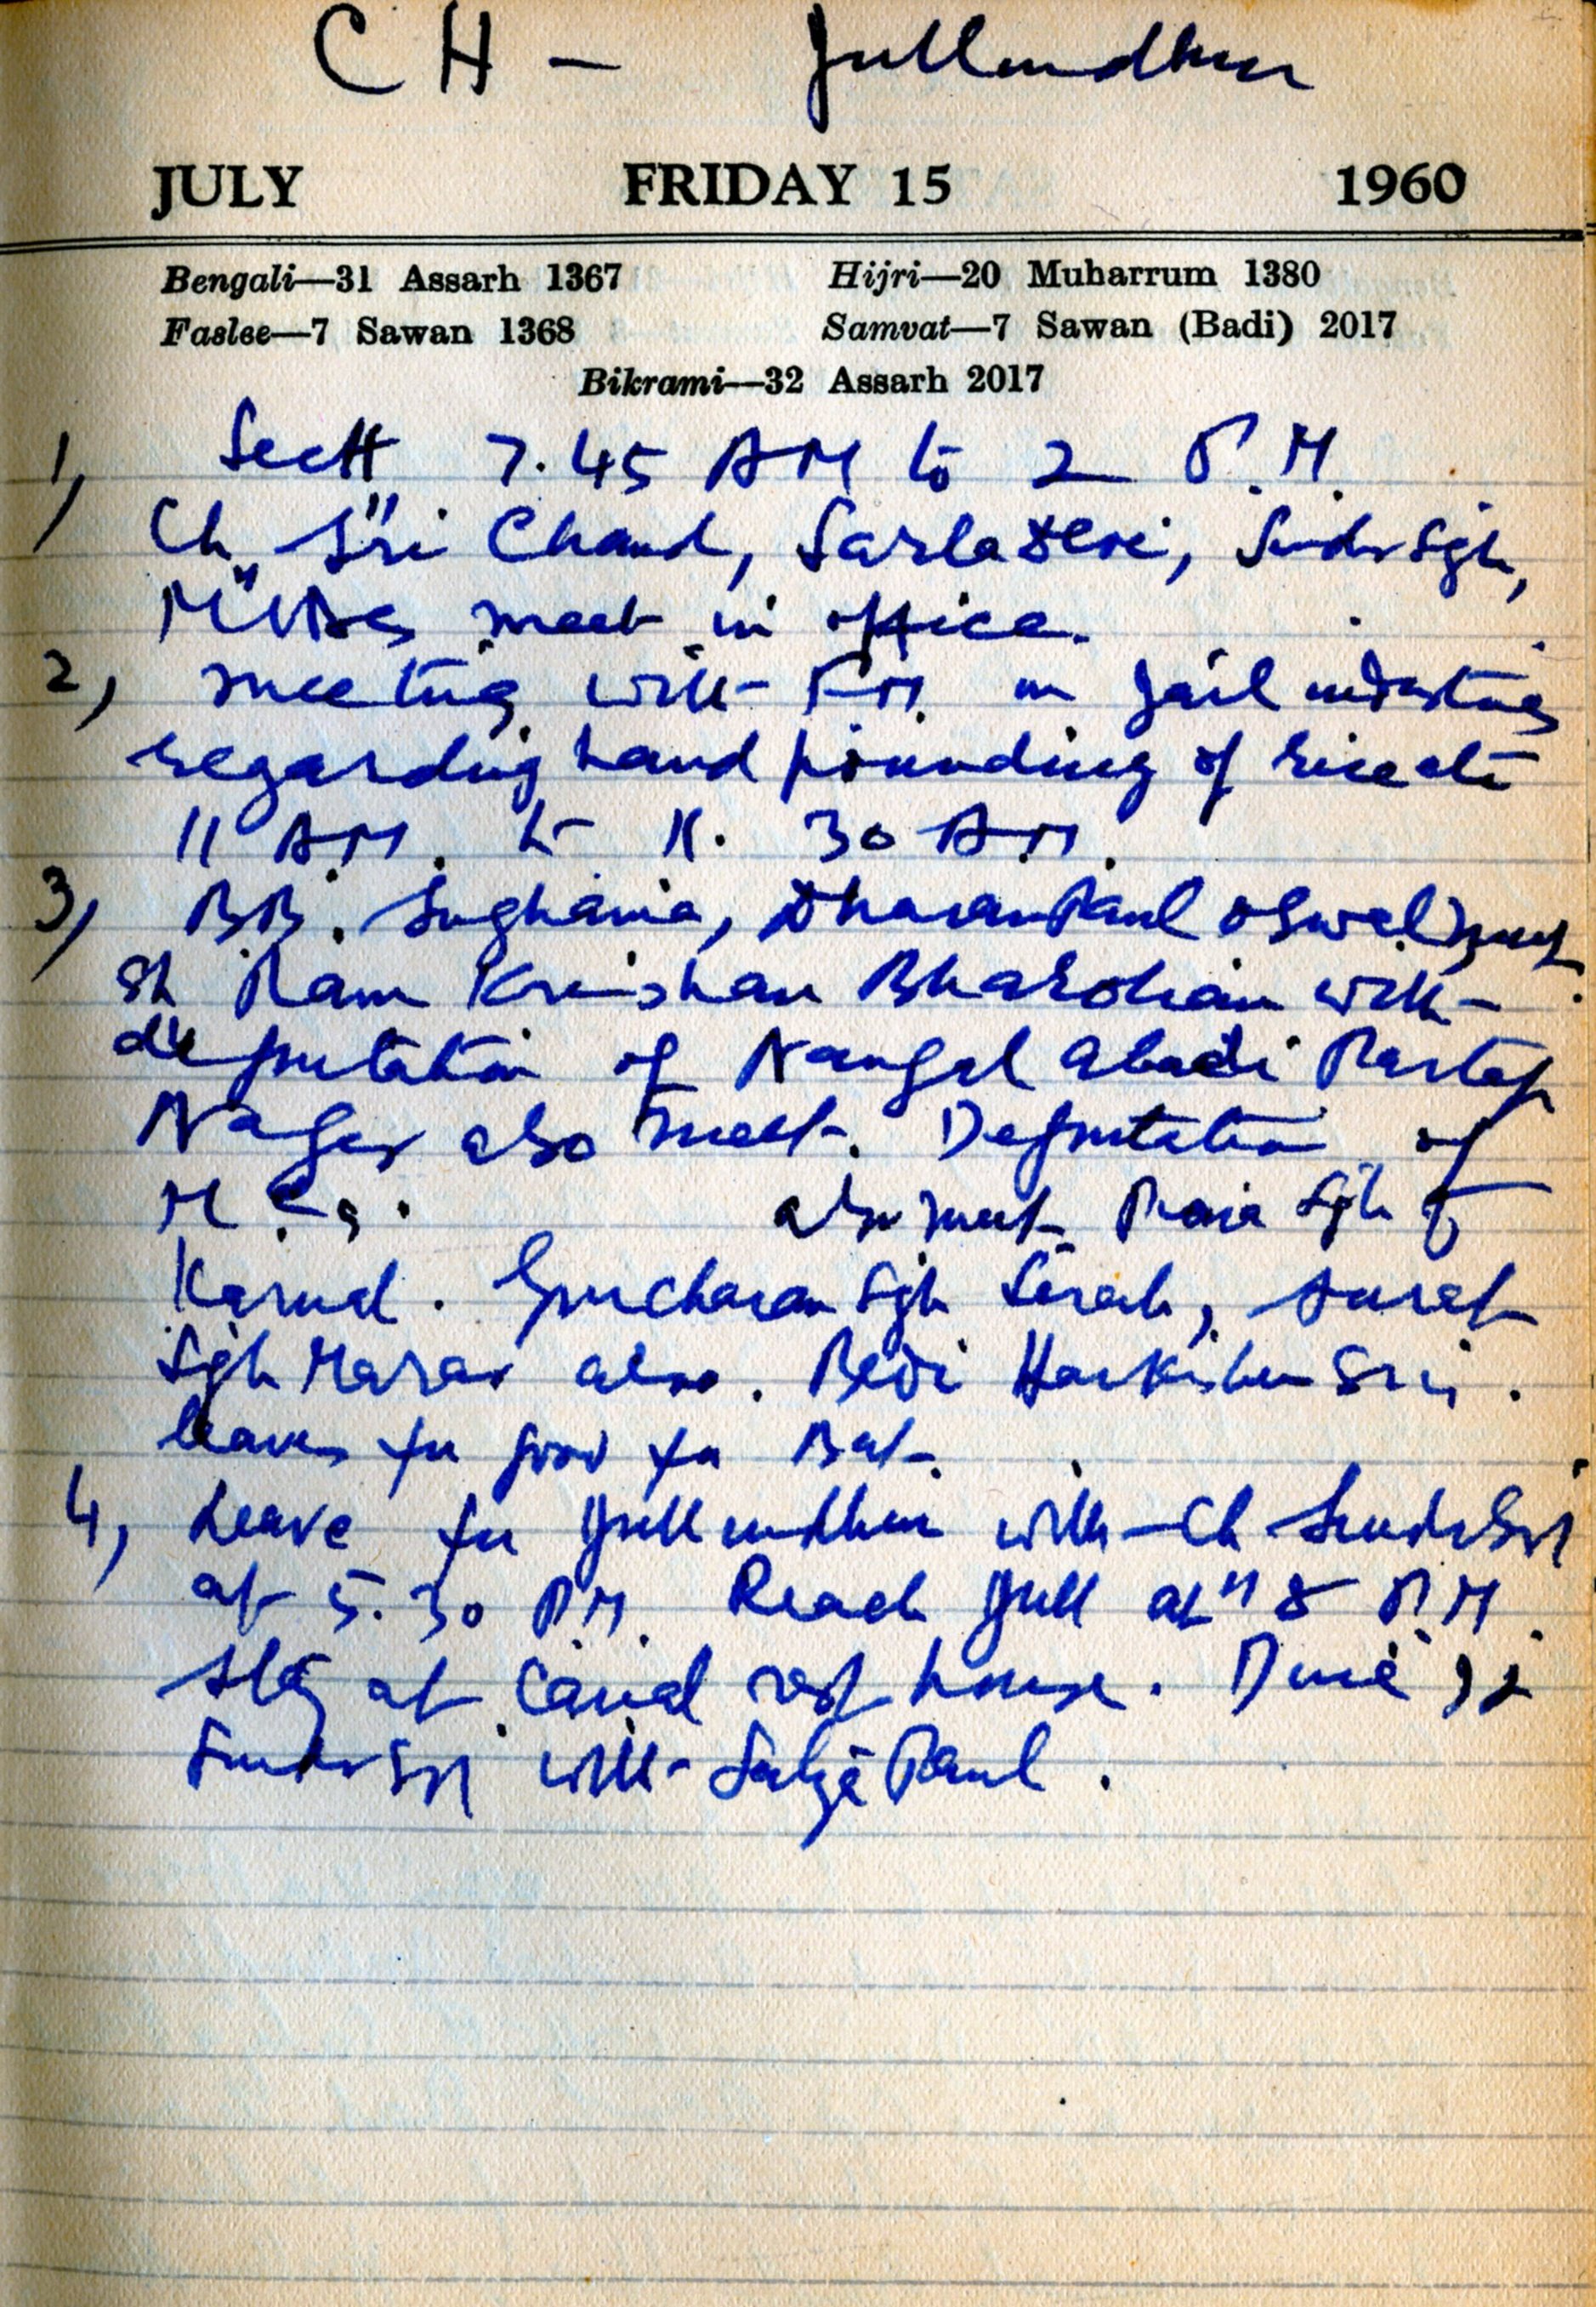 CH - Jullundhur
JULY FRIDAY 15 1960
Bengali—31 Assarh 1367 Hijri—20 Muharrum 1380
Faslee—7 Sawan 1368 Samvat—7 Sawan (Badi) 2017
Bikrami—32 Assarh 2017
1, Sectt 7.45 AM to 2 P.M.
Ch Sri Chand, Sarla Devi, Sunder Sgh,
MLAs meet in office.
2, meeting with FM on Jail industries
regarding hand pounding of rice at
11 AM. to 11.30 AM.
3, BB. Dharam Paul Oswal meet
Sh Ram Krishan Bharolian with
deputation of Nangal abadi Partap
Nagar also meet. Deputation of
also meet. Sgh of
Karnal. Gurcharan Sgh Serah, Surat
Sgh also. Bedi Harkishen
leaves for good for
4, Leave for Jullundhur with Ch Sunder
at 5.30 PM. Reach Jull at 8 P.M.
stay at Canal rest house. Dine
with Satya Paul.